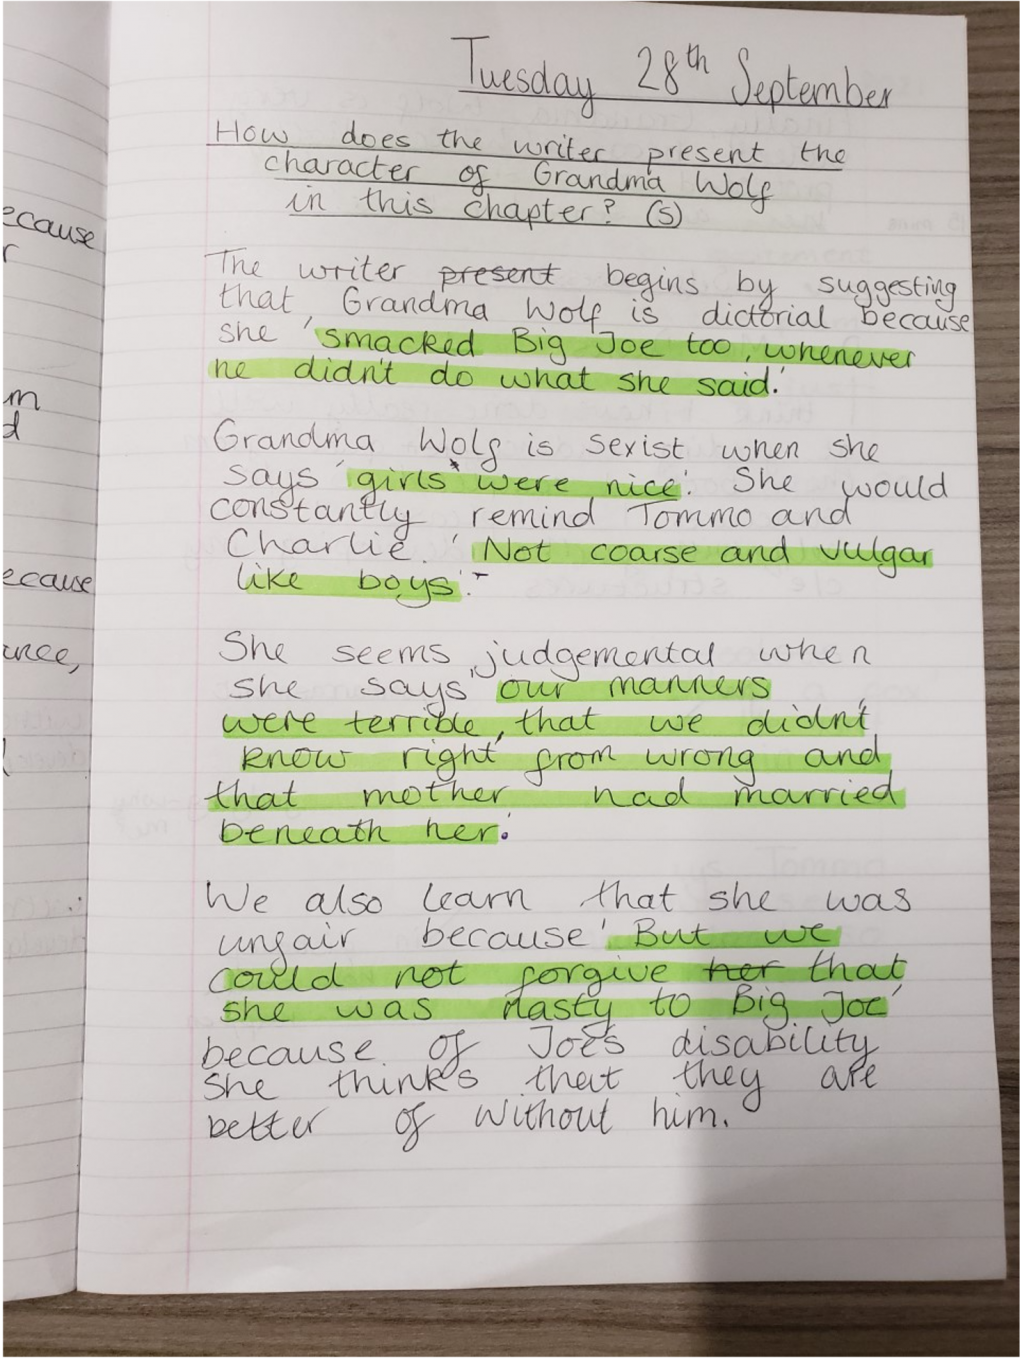 Tuesday 28th September
How does the writer present the
character of Grandma Wolf
in this chapter? (5)
ecause
r
The writer present begins by suggesting
that, Grandma Wolf is dictorial because
she 'smacked Big Joe too, whenever
he didn't do what she said.'
m
d
Grandma Wolf is sexist when she
says 'girls were nice'. She would
constantly remind Tommo and
Charlie. 'Not coarse and vulgar
like boys'.
ecause
She seems judgemental when
ance,
she says 'our manners
were terrible, that we didn't
know right from wrong and
that mother had married
beneath her.'
We also learn that she was
unfair because 'But we
could not forgive her that
she was nasty to Big Joe'
because of Joe's disability
She thinks that they are
better of without him.